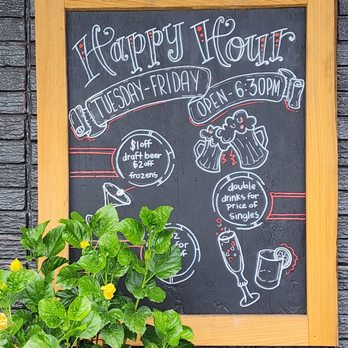 Happy Hour
TUESDAY-FRIDAY
OPEN-6:30PM
$1off
draft beer
$2off
frozens
double
drinks for
price of
singles
2
for